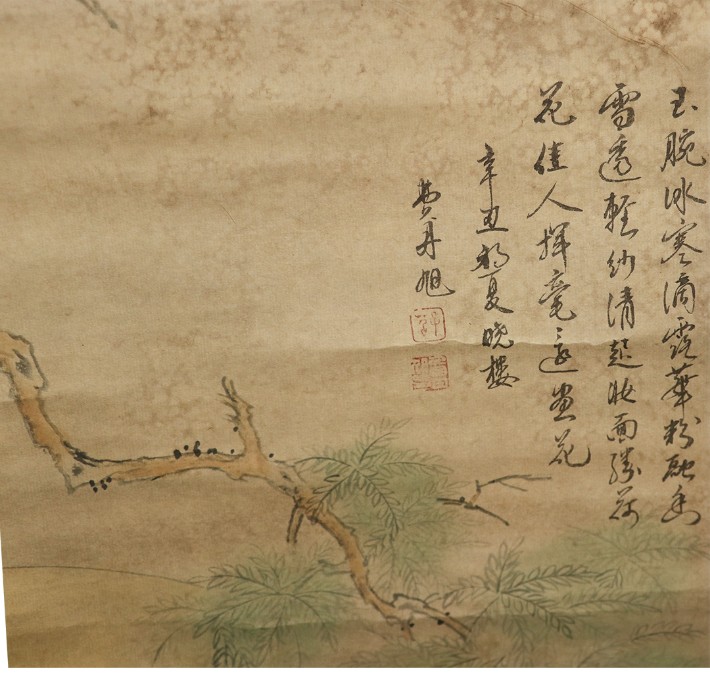 玉腕冰寒滴露華粉融香
雪透輕紗清起妝面勝荷
花佳人揮毫畫花
辛丑初夏曉樓
費丹旭